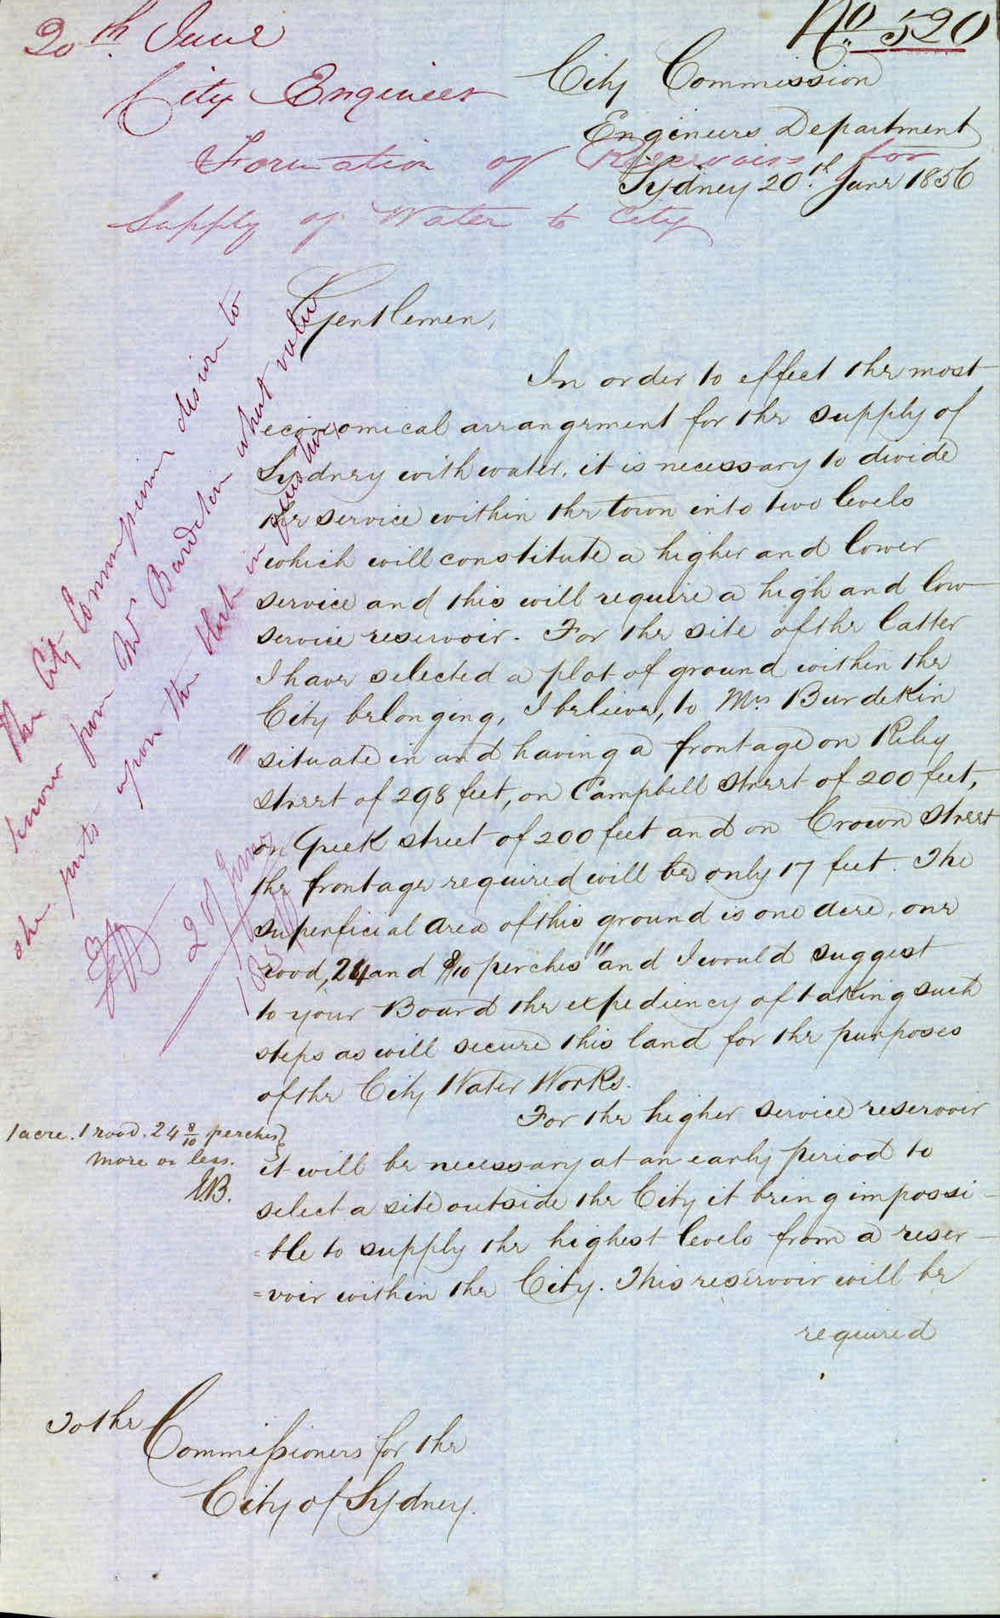 No 520
20th June
City Engineer
Formation of Reservoirs for
Supply of Water to City
City Commission
Engineers Department
Sydney 20th June 1856
Gentlemen,
In order to effect the most
economical arrangement for the supply of
Sydney with water, it is necessary to divide
the service within the town into two levels
which will constitute a higher and lower
service and this will require a high and low
service reservoir. For the site of the latter
I have selected a plot of ground within the
City belonging, I believe, to Mrs Burdekin
" situate in and having a frontage on Riley
street of 298 feet, on Campbell Street of 200 feet,
on Greek street of 200 feet and on Crown Street
the frontage required will be only 17 feet. The
superficial area of this ground is one acre, one
rood, 24 and 8/10 perches" and I would suggest
to your Board the expediency of taking such
steps as will secure this land for the purposes
of the City Water Works.
For the higher service reservoir
it will be necessary at an early period to
select a site outside the City it being impossi-
=ble to supply the highest levels from a reser-
=voir within the City. This reservoir will be
required
To the
Commissioners for the
City of Sydney.
1 acre. 1 rood. 24 8/10 perches
more or less.
EB.
The City Commissioners desire to
know from Mrs Burdekin what value
she puts upon the block in question
20 June
1856